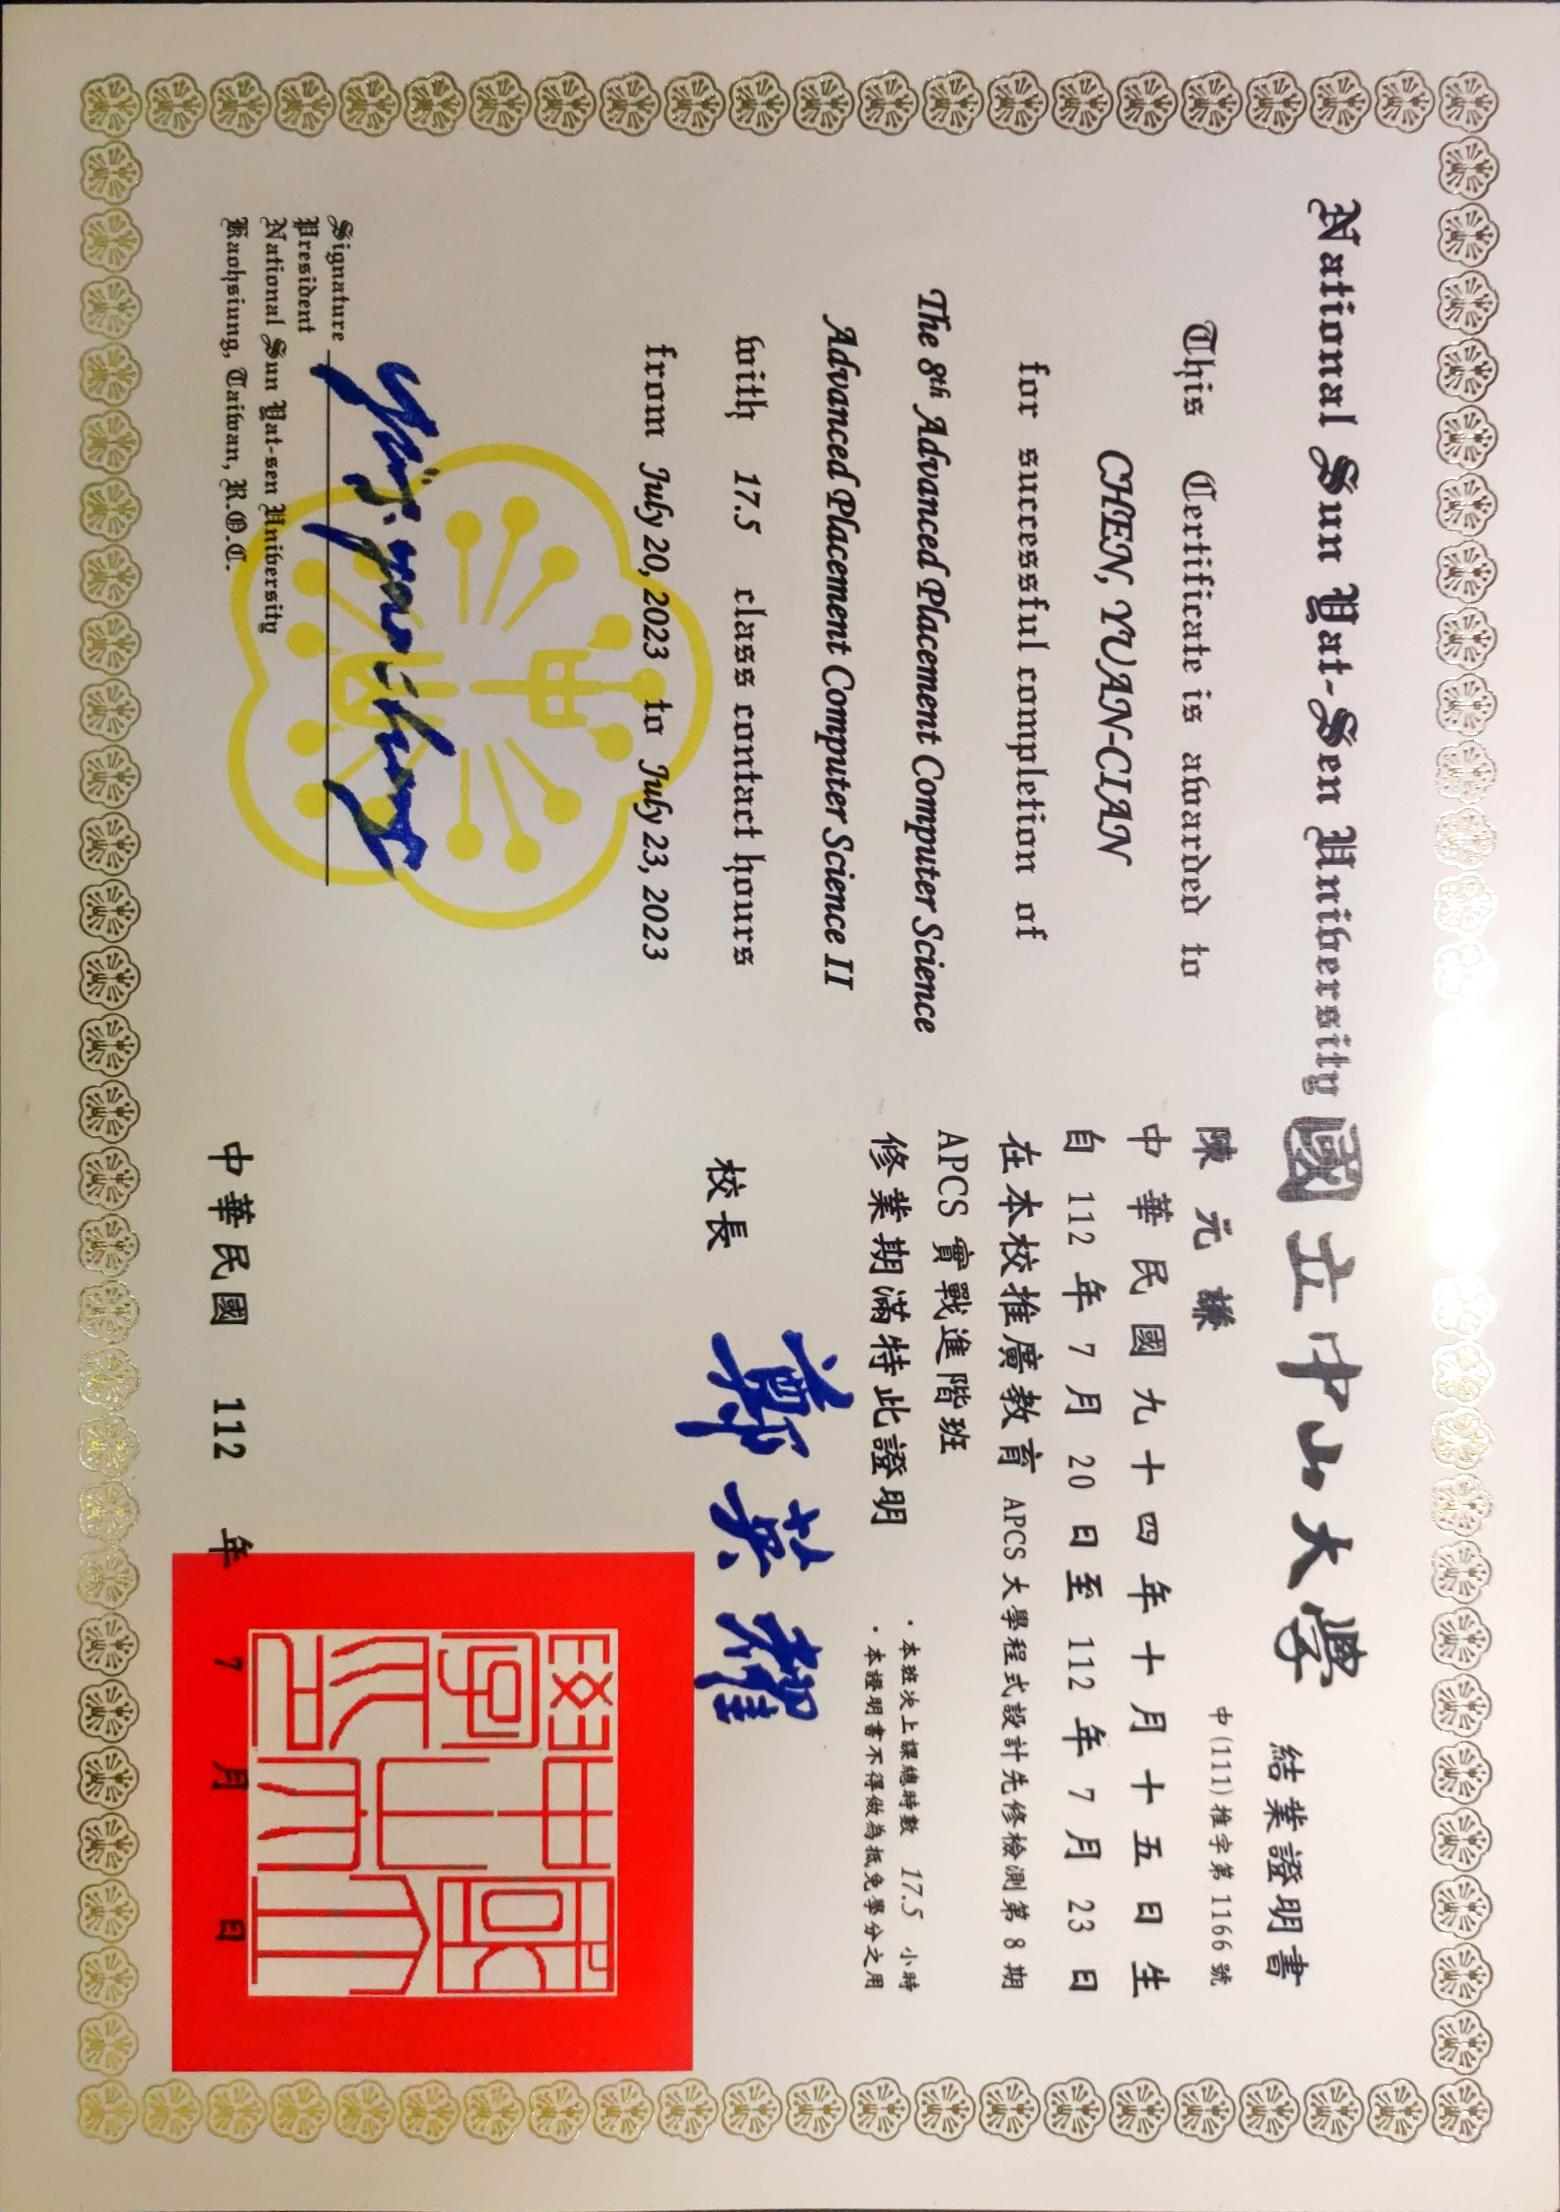 National Sun Yat-Sen University
This Certificate is awarded to
CHEN, YUAN-CIAN
for successful completion of
The 8th Advanced Placement Computer Science
Advanced Placement Computer Science II
with 17.5 class contact hours
from July 20, 2023 to July 23, 2023
Signature
President
National Sun Yat-sen University
Kaohsiung, Taiwan, R.O.C.
國立中山大學 結業證明書
中(111)推字第1166號
陳元謙
中華民國九十四年十月十五日生
自 112 年 7 月 20 日至 112 年 7 月 23 日
在本校推廣教育 APCS 大學程式設計先修檢測第 8 期
APCS 實戰進階班
修業期滿特此證明
・本班次上課總時數 17.5 小時
・本證明書不得做為抵免學分之用
校長 鄭英耀
中華民國 112 年 7 月 日